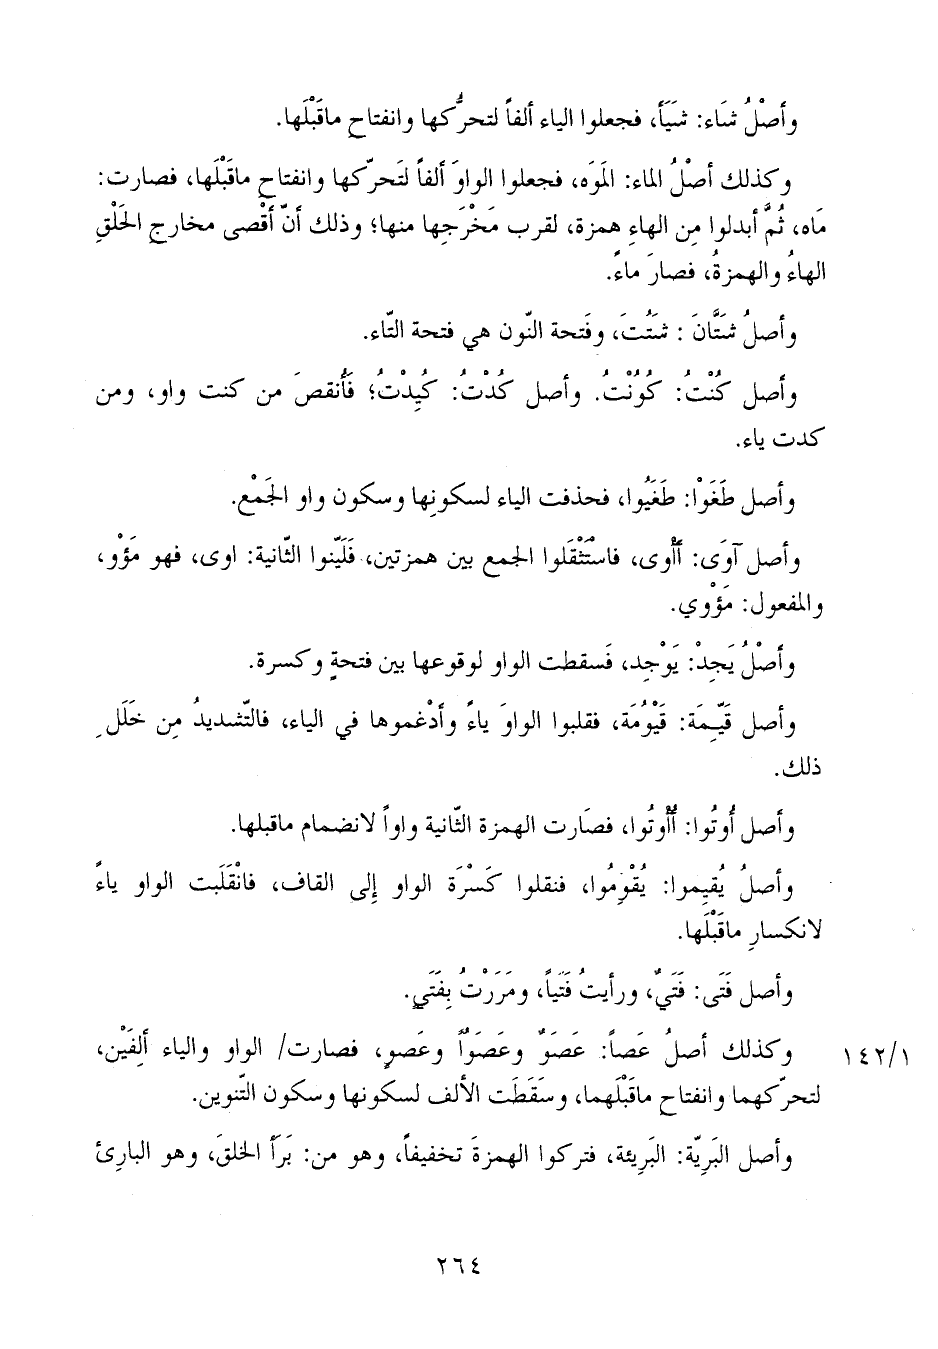 وأصْلُ شَاء: شَيَأَ، فجعلوا الياء ألفاً لتحرُّكها وانفتاح ماقَبْلَها.
وكذلك أصْلُ الماء: المَوَه، فجعلوا الواوَ ألفاً لتَحرّكها وانفتاح ماقَبْلَها، فصارت:
مَاه، ثُمَّ أبدلوا مِن الهاءِ همزة، لقرب مَخْرَجِها منها؛ وذلك أنّ أقْصى مخارج الحَلْقِ
الهاءُ والهمزةُ، فصارَ ماءً.
وأصلُ شتَّانَ : شَتُتَ، وفَتحة النّون هي فتحة التّاء.
وأصل كُنْتُ: كَوُنْتُ. وأصل كُدْتُ: كُيِدْتُ؛ فَأُنقصَ من كنت واو، ومن
كدت ياء.
وأصل طَغَوْا: طَغَيُوا، فحذفت الياء لسكونِها وسكون واو الجَمْع.
وأصل آوَى: أَأْوى، فاسْتَثْقَلوا الجمع بين همزتين، فَلَيّنوا الثّانية: اوى، فهو مَؤْو،
والمفعول: مَؤْوي.
وأصْلُ يَجِدْ: يَوْجِد، فَسقطت الواو لوقوعها بين فتحةٍ وكسرة.
وأصل قَيِّمَة: قَيْوُمَة، فقلبوا الواوَ ياءً وأدْغموها في الياء، فالتّشديدُ مِن خَلَلِ
ذلك.
وأصل أُوتُوا: أُأْوتُوا، فصَارت الهمزة الثّانية واواً لانضمام ماقبلها.
وأصلُ يُقيِموا: يُقْوِمُوا، فنقلوا كَسْرَة الواو إِلى القاف، فانْقَلَبت الواو ياءً
لانكسارِ ماقَبْلَها.
وأصل فَتَى: فَتَيٌ، ورأيتُ فَتَياً، ومَرَرْتُ بِفَتَيٍ.
وكذلك أصلُ عَصاً: عَصَوٌ وعَصَوُاً وعَصوٍ، فصارت/ الواو والياء ألِفَيْن، ١٤٢/١
لتحرّكهما وانفتاح ماقَبْلَهما، وسَقَطَت الألف لسكونها وسكون التّنوين.
وأصل البَرِيّة: البَرِيئة، فتركوا الهمزةَ تخفيفاً، وهو من: بَرَأَ الخلقَ، وهو البارِئ
٢٦٤